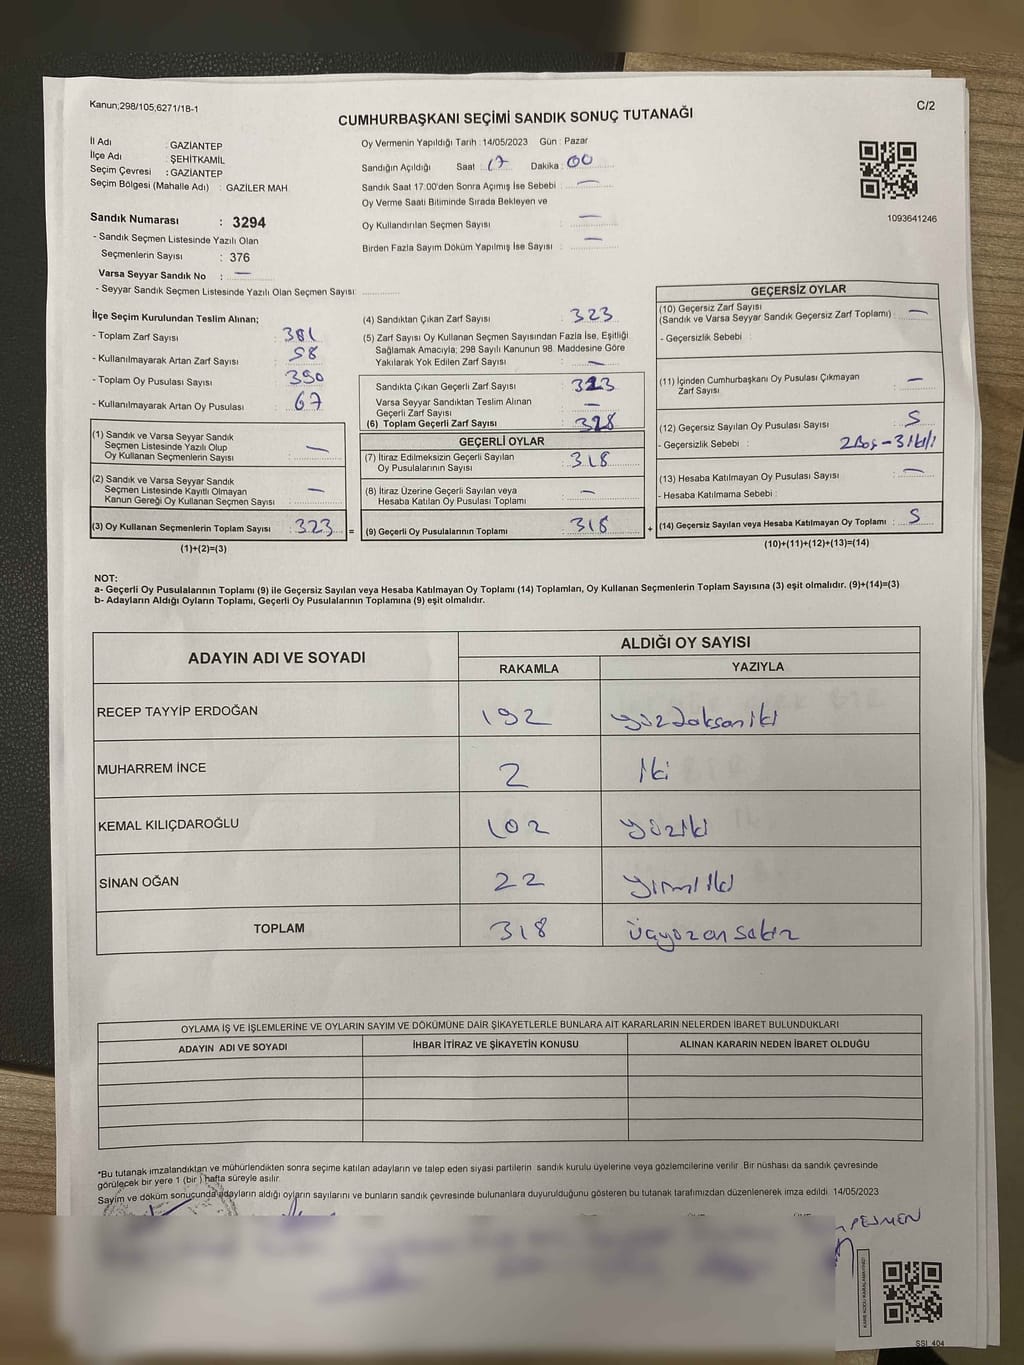 Kanun;298/105,6271/18-1
C/2
CUMHURBAŞKANI SEÇİMİ SANDIK SONUÇ TUTANAĞI
İl Adı : GAZİANTEP
İlçe Adı : ŞEHİTKAMİL
Seçim Çevresi : GAZİANTEP
Seçim Bölgesi (Mahalle Adı) : GAZİLER MAH
Sandık Numarası : 3294
- Sandık Seçmen Listesinde Yazılı Olan
Seçmenlerin Sayısı : 376
Varsa Seyyar Sandık No : —
- Seyyar Sandık Seçmen Listesinde Yazılı Olan Seçmen Sayısı:
Oy Vermenin Yapıldığı Tarih : 14/05/2023 Gün : Pazar
Sandığın Açıldığı Saat : 17 Dakika : 00
Sandık Saat 17.00'den Sonra Açımış İse Sebebi : —
Oy Verme Saati Bitiminde Sırada Bekleyen ve
Oy Kullandırılan Seçmen Sayısı : —
Birden Fazla Sayım Döküm Yapılmış İse Sayısı : —
1093641246
İlçe Seçim Kurulundan Teslim Alınan;
- Toplam Zarf Sayısı : 381
- Kullanılmayarak Artan Zarf Sayısı : 58
- Toplam Oy Pusulası Sayısı : 390
- Kullanılmayarak Artan Oy Pusulası : 67
(1) Sandık ve Varsa Seyyar Sandık
Seçmen Listesinde Yazılı Olup
Oy Kullanan Seçmenlerin Sayısı : —
(2) Sandık ve Varsa Seyyar Sandık
Seçmen Listesinde Kayıtlı Olmayan
Kanun Gereği Oy Kullanan Seçmen Sayısı : —
(3) Oy Kullanan Seçmenlerin Toplam Sayısı : 323 =
(1)+(2)=(3)
(4) Sandıktan Çıkan Zarf Sayısı : 323
(5) Zarf Sayısı Oy Kullanan Seçmen Sayısından Fazla İse, Eşitliği
Sağlamak Amacıyla; 298 Sayılı Kanunun 98. Maddesine Göre
Yakılarak Yok Edilen Zarf Sayısı : —
Sandıkta Çıkan Geçerli Zarf Sayısı : 323
Varsa Seyyar Sandıktan Teslim Alınan
Geçerli Zarf Sayısı : —
(6) Toplam Geçerli Zarf Sayısı : 328
GEÇERLİ OYLAR
(7) İtiraz Edilmeksizin Geçerli Sayılan
Oy Pusulalarının Sayısı : 318
(8) İtiraz Üzerine Geçerli Sayılan veya
Hesaba Katılan Oy Pusulası Toplamı : —
(9) Geçerli Oy Pusulalarının Toplamı : 318 +
GEÇERSİZ OYLAR
(10) Geçersiz Zarf Sayısı
(Sandık ve Varsa Seyyar Sandık Geçersiz Zarf Toplamı) : —
- Geçersizlik Sebebi :
(11) İçinden Cumhurbaşkanı Oy Pusulası Çıkmayan
Zarf Sayısı : —
(12) Geçersiz Sayılan Oy Pusulası Sayısı : 5
- Geçersizlik Sebebi : 2 Boş - 3
(13) Hesaba Katılmayan Oy Pusulası Sayısı : —
- Hesaba Katılmama Sebebi :
(14) Geçersiz Sayılan veya Hesaba Katılmayan Oy Toplamı : 5
(10)+(11)+(12)+(13)=(14)
NOT:
a- Geçerli Oy Pusulalarının Toplamı (9) ile Geçersiz Sayılan veya Hesaba Katılmayan Oy Toplamı (14) Toplamları, Oy Kullanan Seçmenlerin Toplam Sayısına (3) eşit olmalıdır. (9)+(14)=(3)
b- Adayların Aldığı Oyların Toplamı, Geçerli Oy Pusulalarının Toplamına (9) eşit olmalıdır.
ADAYIN ADI VE SOYADI ALDIĞI OY SAYISI
RAKAMLA YAZIYLA
RECEP TAYYİP ERDOĞAN 192 yüzdoksaniki
MUHARREM İNCE 2 iki
KEMAL KILIÇDAROĞLU 102 yüziki
SİNAN OĞAN 22 yirmiiki
TOPLAM 318 üçyüzonsekiz
OYLAMA İŞ VE İŞLEMLERİNE VE OYLARIN SAYIM VE DÖKÜMÜNE DAİR ŞİKAYETLERLE BUNLARA AİT KARARLARIN NELERDEN İBARET BULUNDUKLARI
ADAYIN ADI VE SOYADI İHBAR İTİRAZ VE ŞİKAYETİN KONUSU ALINAN KARARIN NEDEN İBARET OLDUĞU
*Bu tutanak imzalandıktan ve mühürlendikten sonra seçime katılan adayların ve talep eden siyasi partilerin sandık kurulu üyelerine veya gözlemcilerine verilir. Bir nüshası da sandık çevresinde
görülecek bir yere 1 (bir ) hafta süreyle asılır.
Sayım ve döküm sonucunda adayların aldığı oyların sayılarını ve bunların sandık çevresinde bulunanlara duyurulduğunu gösteren bu tutanak tarafımızdan düzenlenerek imza edildi. 14/05/2023
KARE KODU KARALAMAYINIZ!
SSİ_404